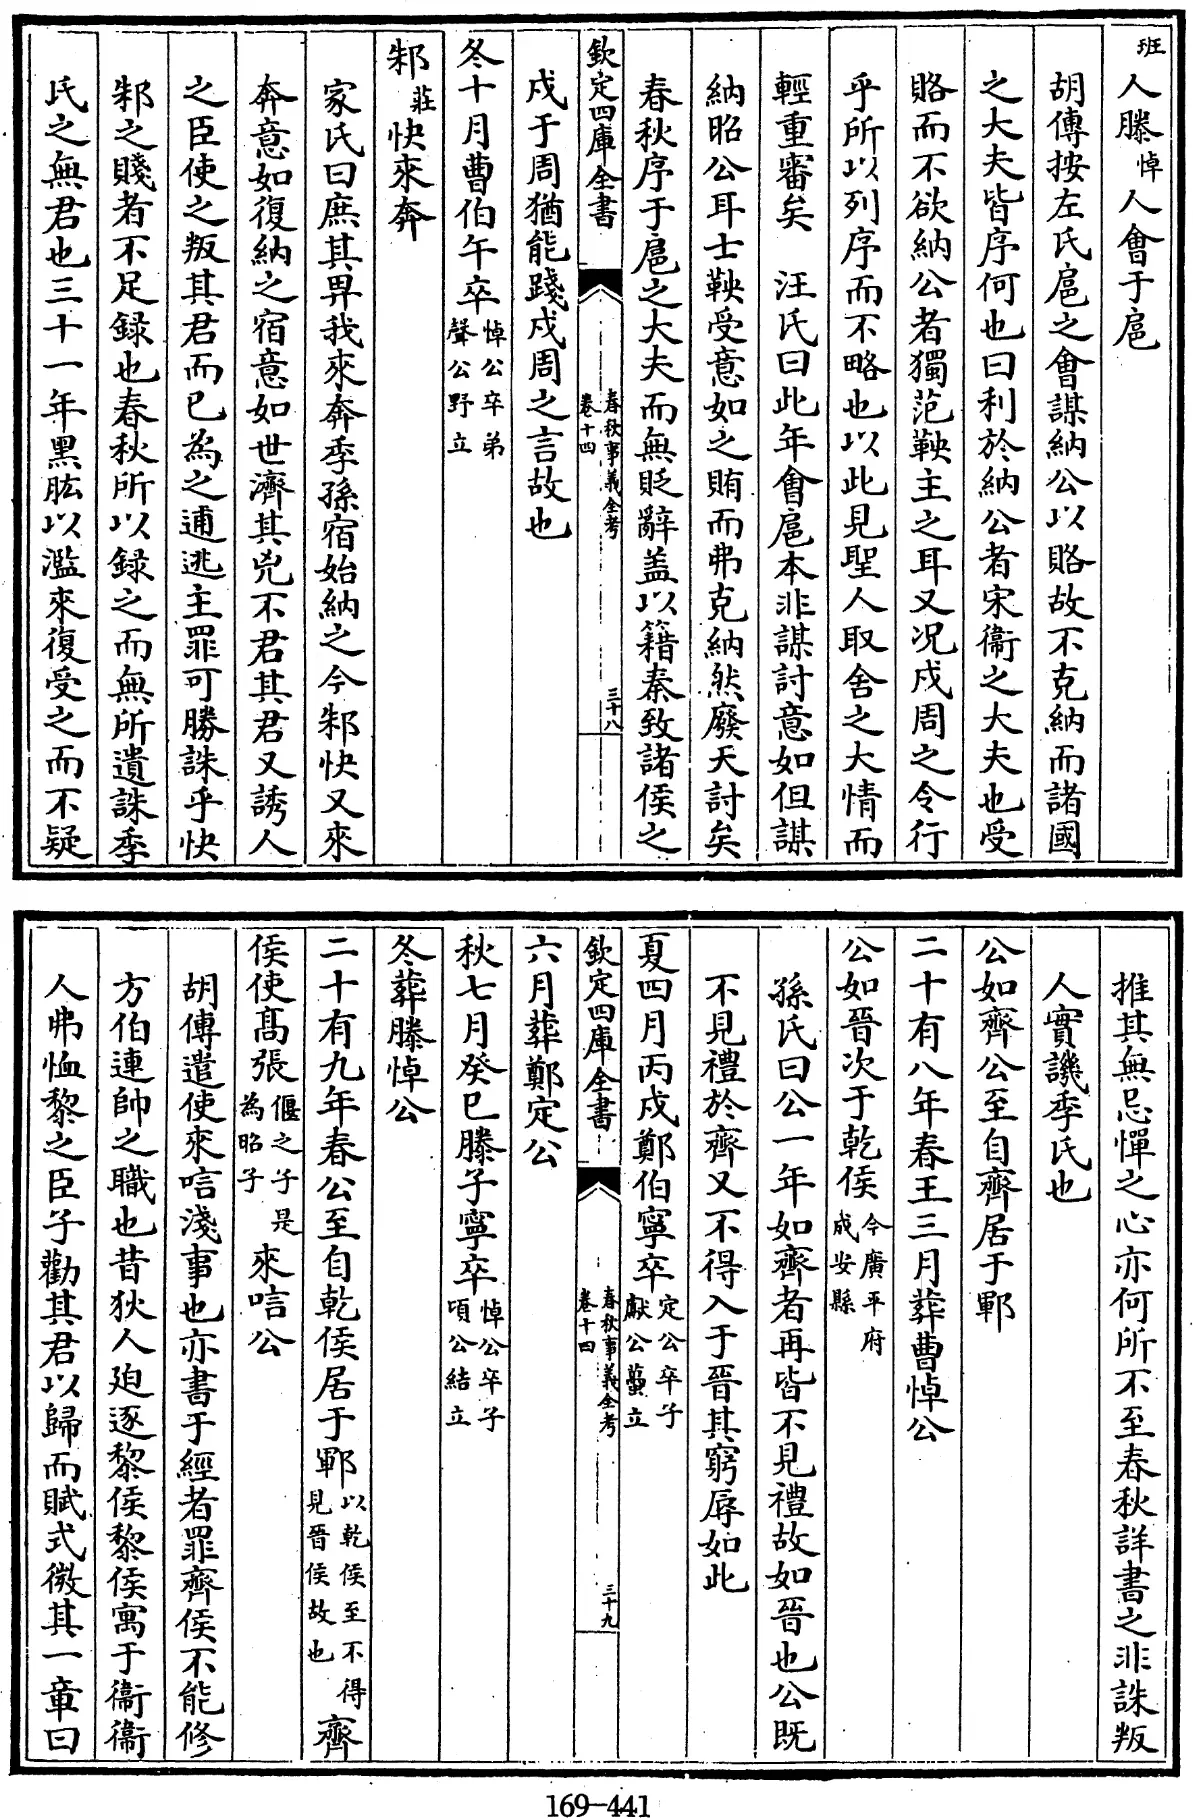 班人滕悼人會于扈
胡傳按左氏扈之會謀納公以賂故不克納而諸國
之大夫皆序何也曰利於納公者宋衞之大夫也受
賂而不欲納公者獨范鞅主之耳又况戍周之令行
乎所以列序而不略也以此見聖人取舍之大情而
輕重審矣　汪氏曰此年會扈本非謀討意如但謀
納昭公耳士鞅受意如之賄而弗克納然廢天討矣
春秋序于扈之大夫而無貶辭盖以籍秦致諸侯之
欽定四庫全書
春秋事義全考
卷十四
三十八
戍于周猶能踐戍周之言故也
冬十月曹伯午卒悼公卒弟聲公野立
邾莊快來奔
家氏曰庶其畀我來奔季孫宿始納之今邾快又來
奔意如復納之宿意如世濟其兇不君其君又誘人
之臣使之叛其君而已為之逋逃主罪可勝誅乎快
邾之賤者不足録也春秋所以録之而無所遺誅季
氏之無君也三十一年黑肱以濫來復受之而不疑
推其無忌憚之心亦何所不至春秋詳書之非誅叛
人實譏季氏也
公如齊公至自齊居于鄆
二十有八年春王三月葬曹悼公
公如晉次于乾侯今廣平府成安縣
孫氏曰公一年如齊者再皆不見禮故如晉也公既
不見禮於齊又不得入于晉其窮辱如此
夏四月丙戌鄭伯寧卒定公卒子獻公蠆立
欽定四庫全書
春秋事義全考
卷十四
三十九
六月葬鄭定公
秋七月癸巳滕子寧卒悼公卒子頃公結立
冬葬滕悼公
二十有九年春公至自乾侯居于鄆以乾侯至不得見晉侯故也齊
侯使髙張偃之子是為昭子來唁公
胡傳遣使來唁淺事也亦書于經者罪齊侯不能修
方伯連帥之職也昔狄人廹逐黎侯黎侯寓于衞衞
人弗恤黎之臣子勸其君以歸而賦式微其一章曰
169-441